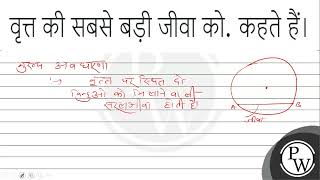 वृत्त की सबसे बड़ी जीवा को. कहते हैं।
मुख्य अवधारणा
वृत्त पर स्थित दो
बिन्दुओं को मिलाने वाली
जीवा होती है
A
B
जीवा
PW